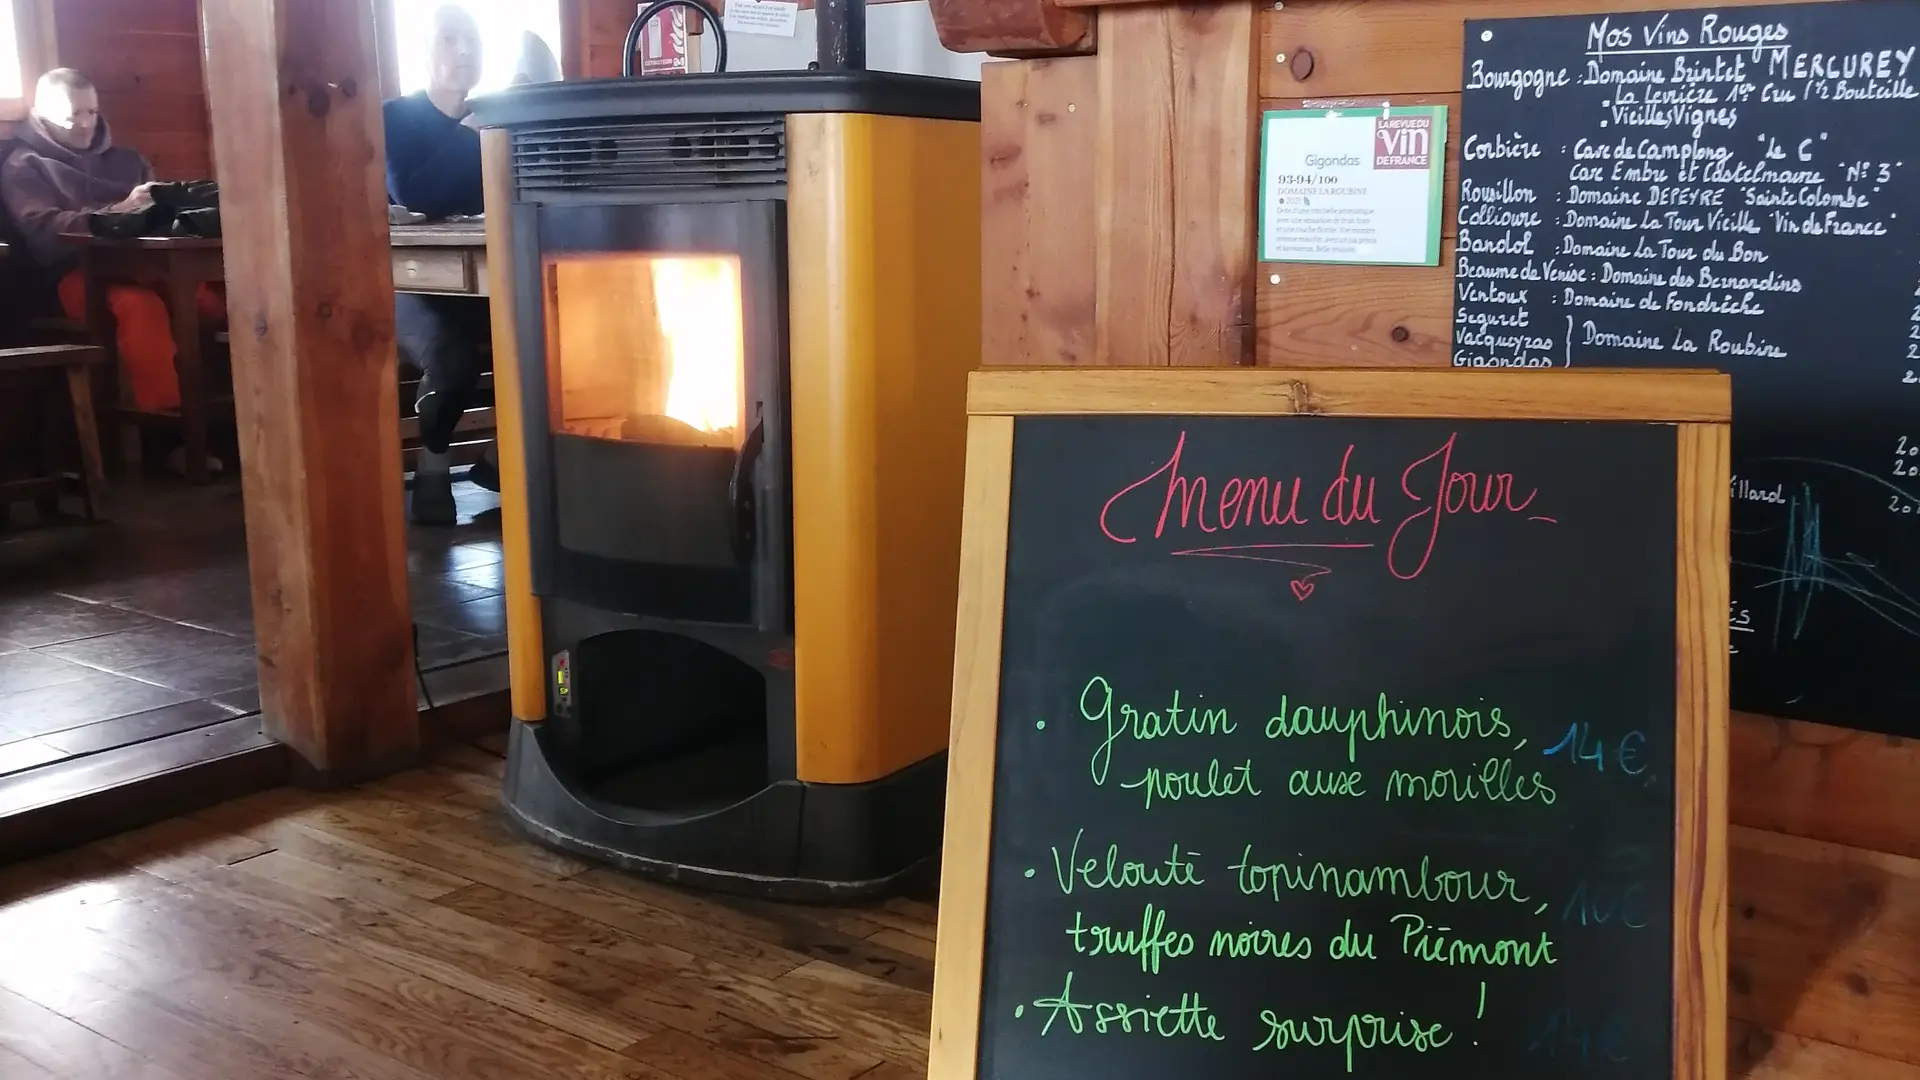 Mos Vins Rouges
Bourgogne : Domaine Brintet MERCUREY
La Levrière 1er Cru (1/2 Bouteille
• Vieilles Vignes
Corbière : Cave de Camplong "Le C"
Cave Embre et Castelmaure "N° 3"
Rousillon : Domaine DEPEYRE "Sainte Colombe"
Collioure : Domaine La Tour Vieille "Vin de France"
Bandol : Domaine La Tour du Bon
Beaume de Venise : Domaine des Bernardins
Ventoux : Domaine de Fondrêche
Seguret
Vacqueyras } Domaine La Roubine
Gigondas
LA REVUE DU
vin
DE FRANCE
Gigondas
93-94/100
DOMAINE LA ROUBINE
2021
Menu du Jour
• Gratin dauphinois, 14€
poulet aux morilles
• Velouté topinambour, 10€
truffes noires du Piémont
• Assiette surprise ! 14€